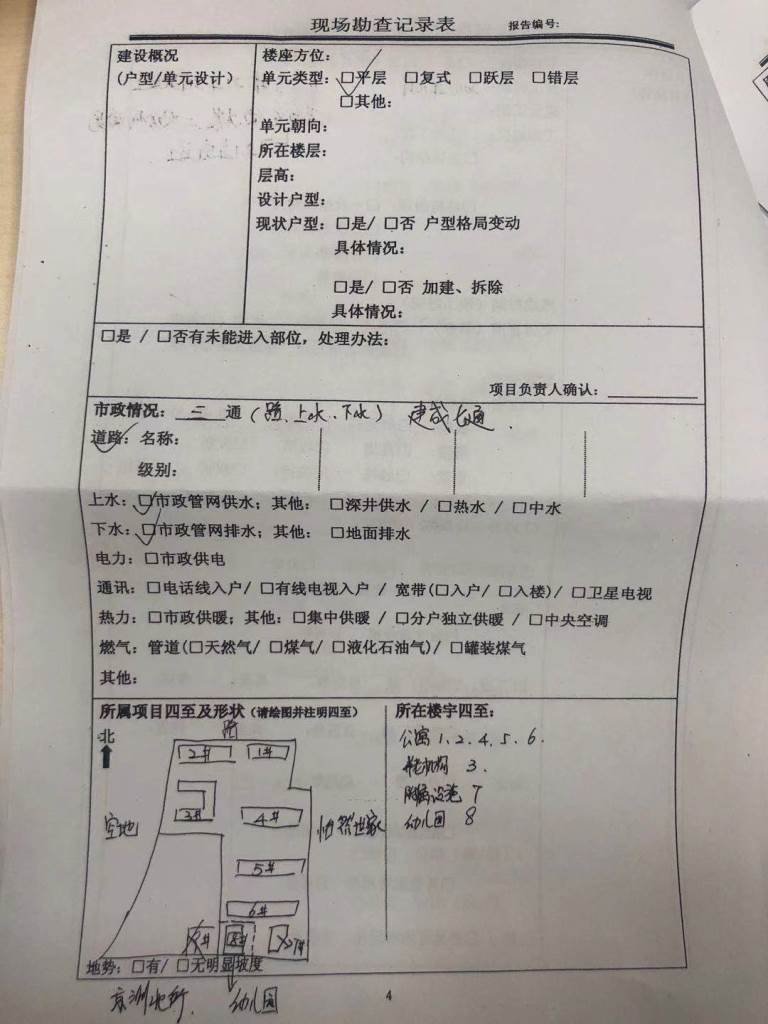 现场勘查记录表 报告编号:
建设概况
(户型/单元设计)
楼座方位:
单元类型: □平层 □复式 □跃层 □错层
□其他:
单元朝向:
所在楼层:
层高:
设计户型:
现状户型: □是/ □否 户型格局变动
具体情况:
□是/ □否 加建、拆除
具体情况:
□是 / □否有未能进入部位, 处理办法:
项目负责人确认:
市政情况: 三 通 (路、上水、下水) 建成七通.
道路: 名称:
级别:
上水: □市政管网供水; 其他: □深井供水 / □热水 / □中水
下水: □市政管网排水; 其他: □地面排水
电力: □市政供电
通讯: □电话线入户/ □有线电视入户 / 宽带(□入户/ □入楼)/ □卫星电视
热力: □市政供暖; 其他: □集中供暖 / □分户独立供暖 / □中央空调
燃气: 管道(□天然气/ □煤气/ □液化石油气)/ □罐装煤气
其他:
所属项目四至及形状 (请绘图并注明四至)
北
路
2# 1#
3# 4#
空地
怡然世家
5#
6#
8# 7#
地势: □有/ □无明显坡度
幼儿园
所在楼宇四至:
公寓 1、2、4、5、6.
养老机构 3.
附属设施 7
幼儿园 8
4